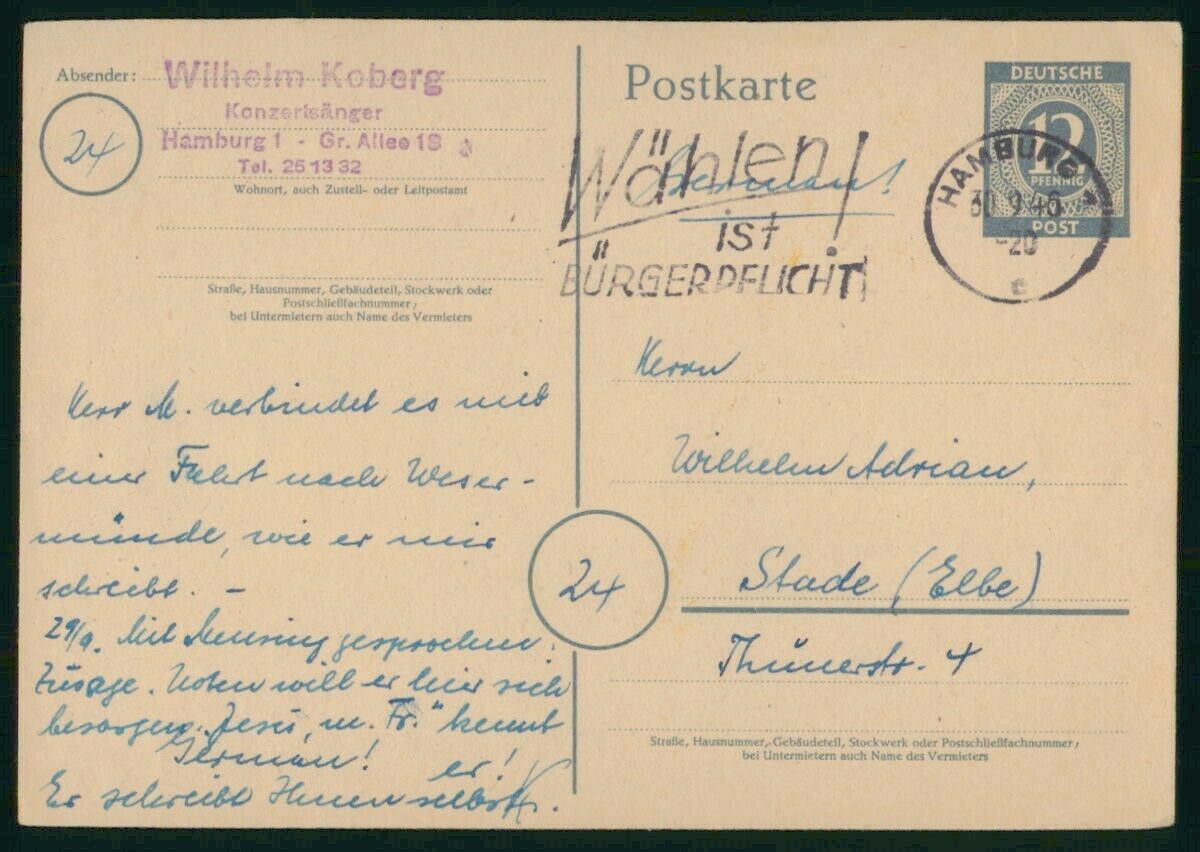 Absender:
Wilhelm Koberg
Konzertsänger
Hamburg 1 - Gr. Allee 18
Tel. 25 13 32
24
Wohnort, auch Zustell- oder Leitpostamt
Straße, Hausnummer, Gebäudeteil, Stockwerk oder
Postschließfachnummer;
bei Untermietern auch Name des Vermieters
Herr M. verbindet es mit
einer Fahrt nach Weser-
münde, wie er mir
schreibt. –
29/9. Mit Mensing gesprochen:
Zusage. Noten will er hier sich
besorgen. „Jesu, m. Fr." kennt
er!
German!
Er schreibt Ihnen selbst.
Postkarte
DEUTSCHE
12
PFENNIG
POST
German!
Wählen
ist
BÜRGERPFLICHT
HAMBURG 1
30.9.46
-20
c
Herrn
Wilhelm Adrian,
24
Stade (Elbe)
Thunerstr. 4
Straße, Hausnummer, Gebäudeteil, Stockwerk oder Postschließfachnummer;
bei Untermietern auch Name des Vermieters